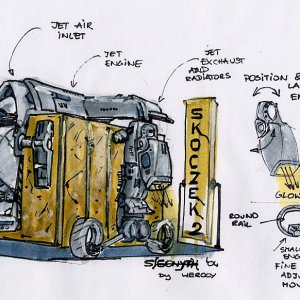 JET AIR
INLET
JET
ENGINE
JET
EXCHAUST
AND
RADIATORS
POSITION &
LA
E
SKOCZEK 2
GLOW
ROUND
RAIL
SMAL
ENG
FINE
ADJ
MOV
by WEROOY